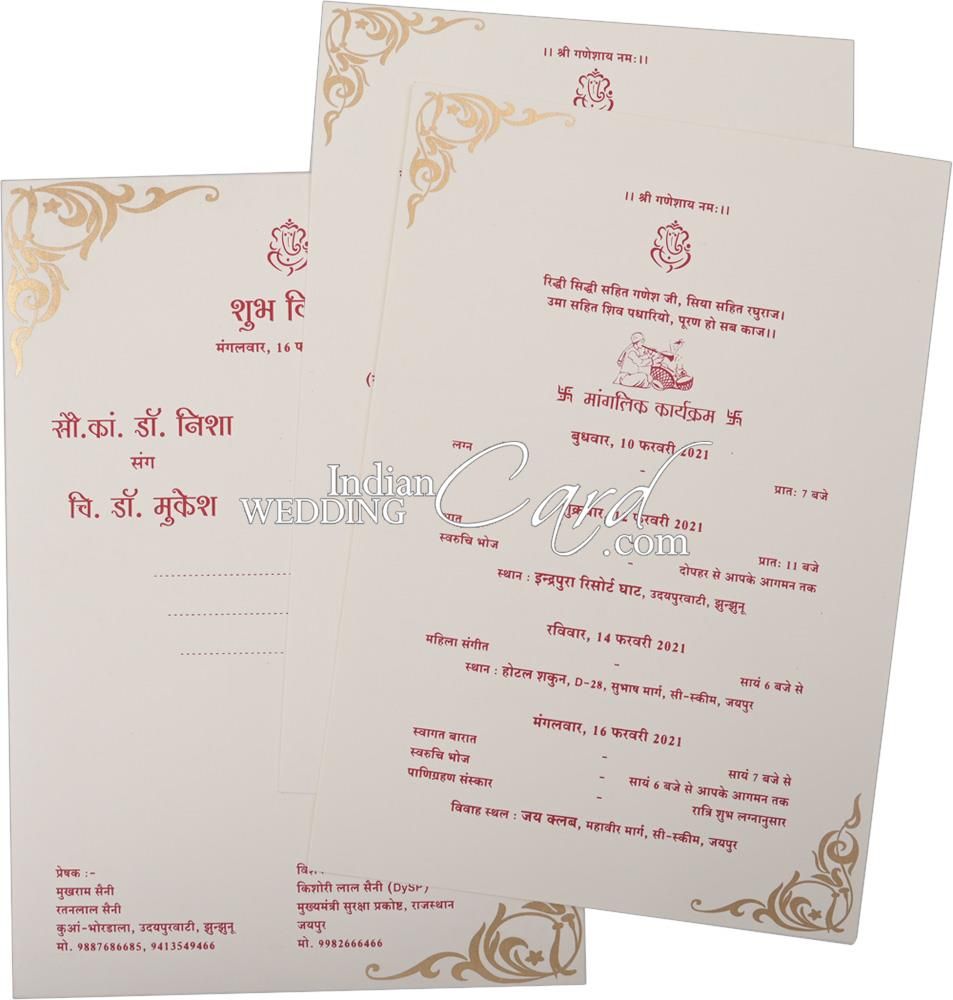 ।। श्री गणेशाय नमः।।
।। श्री गणेशाय नमः।।
रिद्धी सिद्धी सहित गणेश जी, सिया सहित रघुराज।
उमा सहित शिव पधारियो, पूरण हो सब काज।।
卐 मांगलिक कार्यक्रम 卐
बुधवार, 10 फरवरी 2021
लग्न - प्रातः 7 बजे
12 फरवरी 2021
प्रातः 11 बजे
स्वरुचि भोज - दोपहर से आपके आगमन तक
स्थान : इन्द्रपुरा रिसोर्ट घाट, उदयपुरवाटी, झुन्झुनू
रविवार, 14 फरवरी 2021
महिला संगीत - सायं 6 बजे से
स्थान : होटल शकुन, D-28, सुभाष मार्ग, सी-स्कीम, जयपुर
मंगलवार, 16 फरवरी 2021
स्वागत बारात - सायं 7 बजे से
स्वरुचि भोज - सायं 6 बजे से आपके आगमन तक
पाणिग्रहण संस्कार - रात्रि शुभ लग्नानुसार
विवाह स्थल : जय क्लब, महावीर मार्ग, सी-स्कीम, जयपुर
शुभ
मंगलवार, 16
सौ.कां. डॉ. निशा
संग
चि. डॉ. मुकेश
प्रेषक :-
मुखराम सैनी
रतनलाल सैनी
कुआं-भोरडाला, उदयपुरवाटी, झुन्झुनू
मो. 9887686685, 9413549466
किशोरी लाल सैनी (DySP)
मुख्यमंत्री सुरक्षा प्रकोष्ट, राजस्थान
जयपुर
मो. 9982666466
Indian
WEDDING Card
.com